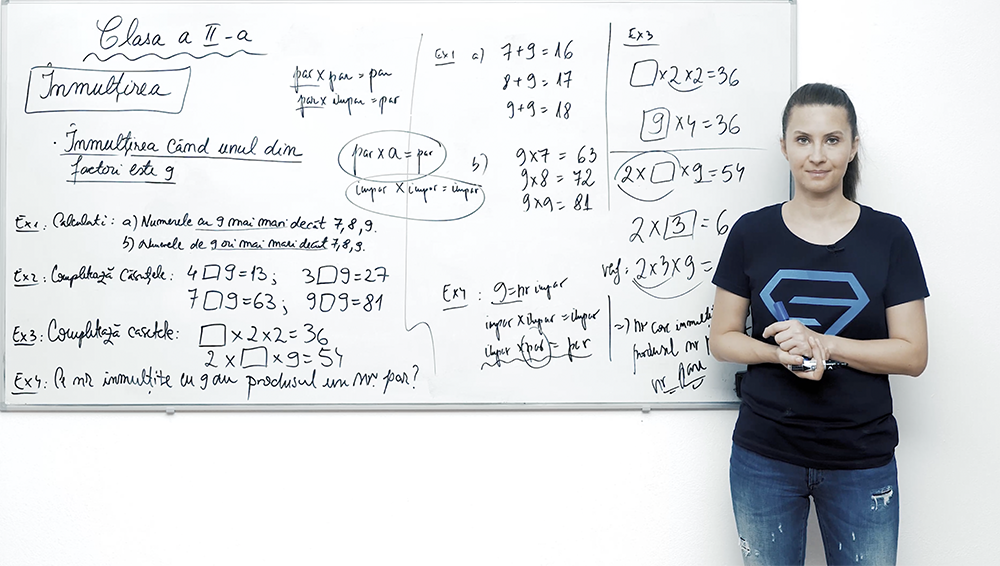 Clasa a II-a
Înmulțirea
par x par = par
par x impar = par
· Înmulțirea când unul din
factori este 9
par x a = par
impar x impar = impar
Ex1: Calculati: a) Numerele cu 9 mai mari decât 7, 8, 9.
b) Numerele de 9 ori mai mari decat 7, 8, 9.
Ex2: Completează căsuțele: 4 □ 9 = 13 ; 3 □ 9 = 27
7 □ 9 = 63 ; 9 □ 9 = 81
Ex3: Completează casetele: □ x 2 x 2 = 36
2 x □ x 9 = 54
Ex4: Ce nr inmulțite cu 9 au produsul un nr. par?
Ex1 a) 7 + 9 = 16
8 + 9 = 17
9 + 9 = 18
b) 9 x 7 = 63
9 x 8 = 72
9 x 9 = 81
Ex4 : 9 = nr impar
impar x impar = impar
impar x par = par
Ex3
□ x 2 x 2 = 36
9 x 4 = 36
2 x □ x 9 = 54
2 x 3 = 6
2 x 3 x 9 =
=> nr care
produsul nr
nr.